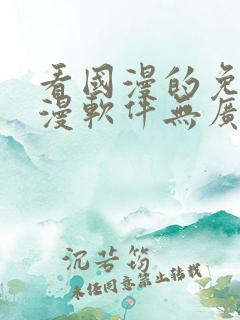 看國漫的免
漫軟件無廣
沉若筠
未经同意禁止转载